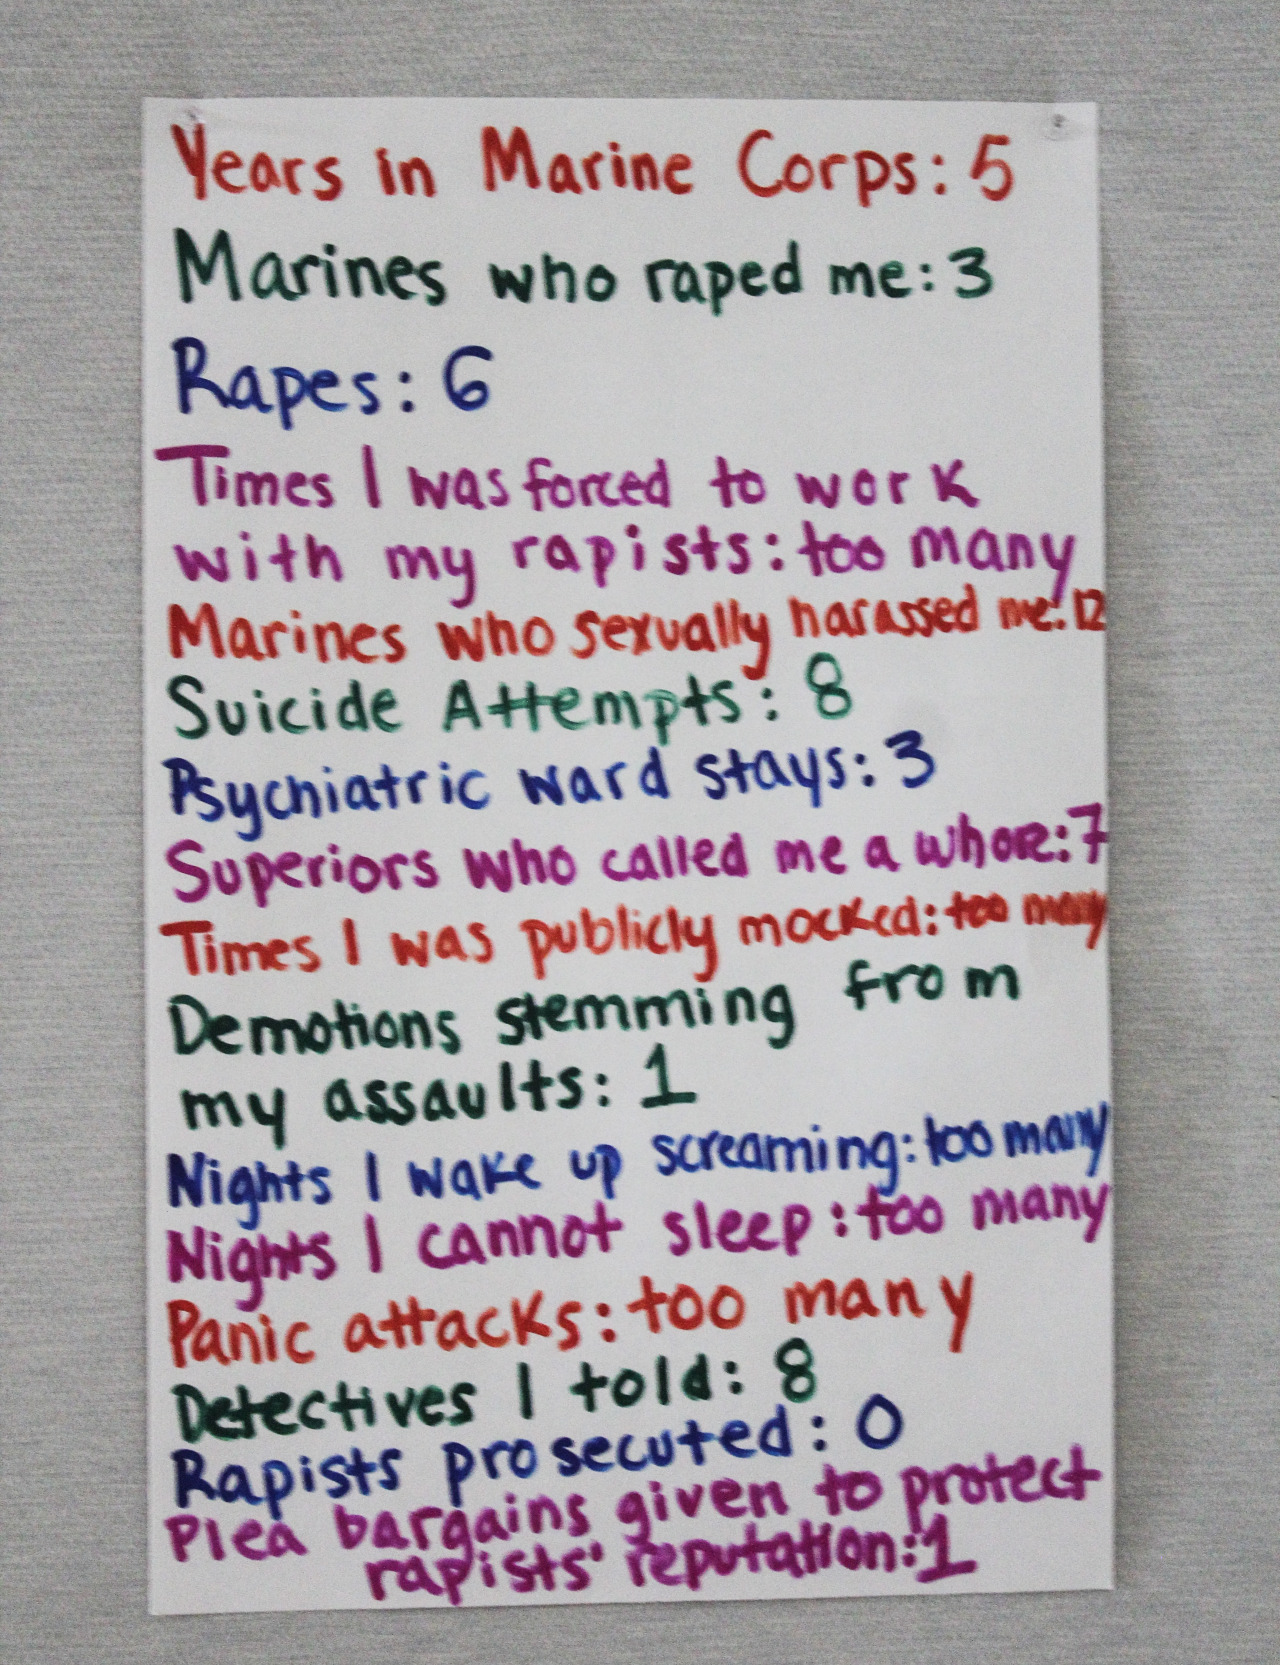 Years in Marine Corps: 5
Marines who raped me: 3
Rapes: 6
Times I was forced to work
with my rapists: too many
Marines who sexually harassed me: 12
Suicide Attempts: 8
Psychiatric ward stays: 3
Superiors who called me a whore: 7
Times I was publicly mocked: too many
Demotions stemming from
my assaults: 1
Nights I wake up screaming: too many
Nights I cannot sleep: too many
Panic attacks: too many
Detectives I told: 8
Rapists prosecuted: 0
Plea bargains given to protect
rapists' reputation: 1